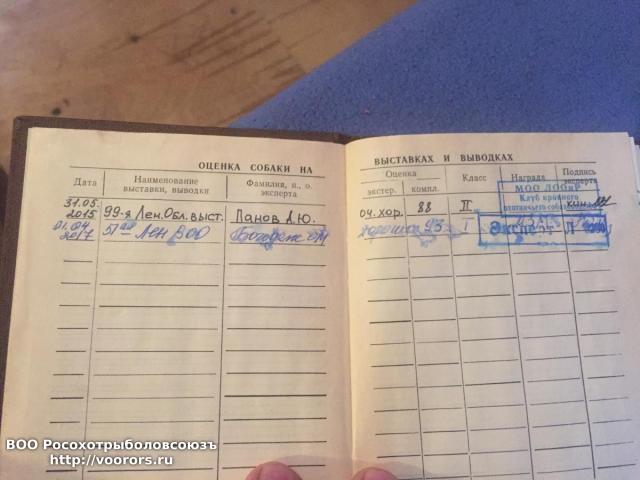 ОЦЕНКА СОБАКИ НА
Дата
Наименование
выставки, выводки
Фамилия, и., о.
эксперта
31.05.
2015
99-я Лен.Обл.выст.
Панов А.Ю.
01.04
2017
51 Лен ВОО
ВЫСТАВКАХ И ВЫВОДКАХ
Оценка
экстер.
компл.
Класс
Награда
Подпись
эксперта
оч. хор.
88
II
хорошо
93
I
МОО ЛООиР
Клуб кровного
охотничьего собаководства
Эксперт
ВОО Росохотрыболовсоюзъ
http://voorors.ru